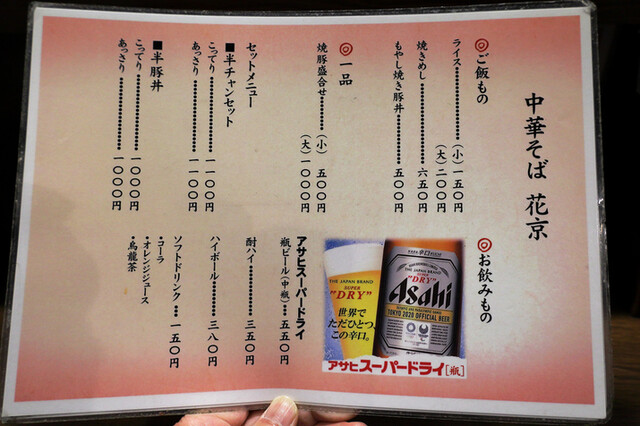 中華そば 花京
◎ご飯もの
ライス………………(小)一五〇円
(大)二〇〇円
焼きめし………………六五〇円
もやし焼き豚丼………五〇〇円
◎一品
焼豚盛合せ…………(小)五〇〇円
(大)一〇〇〇円
セットメニュー
■半チャンセット
こってり………………一一〇〇円
あっさり………………一一〇〇円
■半豚丼
こってり………………一〇〇〇円
あっさり………………一〇〇〇円
◎お飲みもの
THE JAPAN BRAND
SUPER
"DRY"
世界で
ただひとつ、
この辛口。
辛口
THE JAPAN BRAND
SUPER
"DRY"
Asahi
TOKYO 2020 OFFICIAL BEER
アサヒスーパードライ[瓶]
アサヒスーパードライ
瓶ビール(中瓶)…五五〇円
酎ハイ………………三五〇円
ハイボール…………三八〇円
ソフトドリンク……一五〇円
・コーラ
・オレンジジュース
・烏龍茶